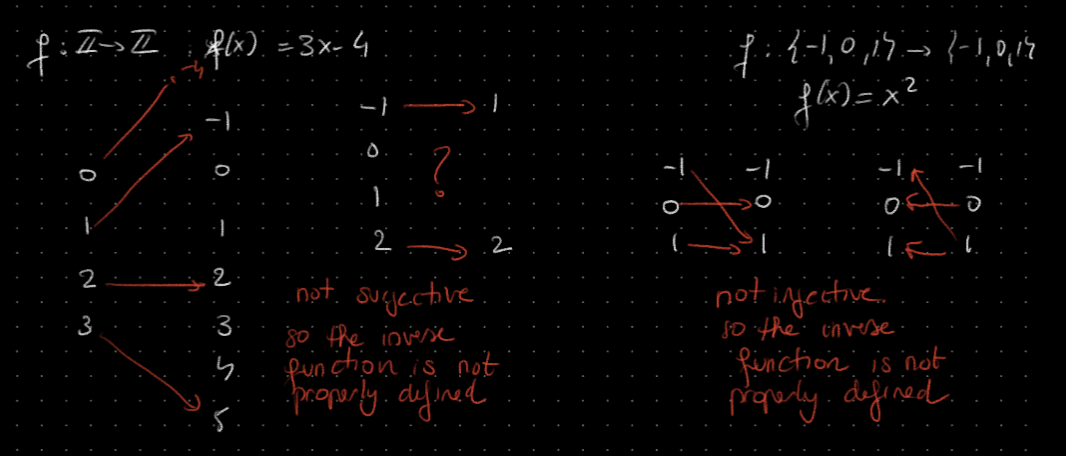 f : ℤ → ℤ : f(x) = 3x - 4
-4
-1
0
1
2
3
0
1
2
3
4
5
-1 → 1
0
1
?
2 → 2
not surjective
so the inverse
function is not
properly defined
f : {-1, 0, 1} → {-1, 0, 1}
f(x) = x²
-1 -1
0 → 0
1 → 1
-1 -1
0 ← 0
1 ← 1
not injective.
so the inverse
function is not
properly defined.